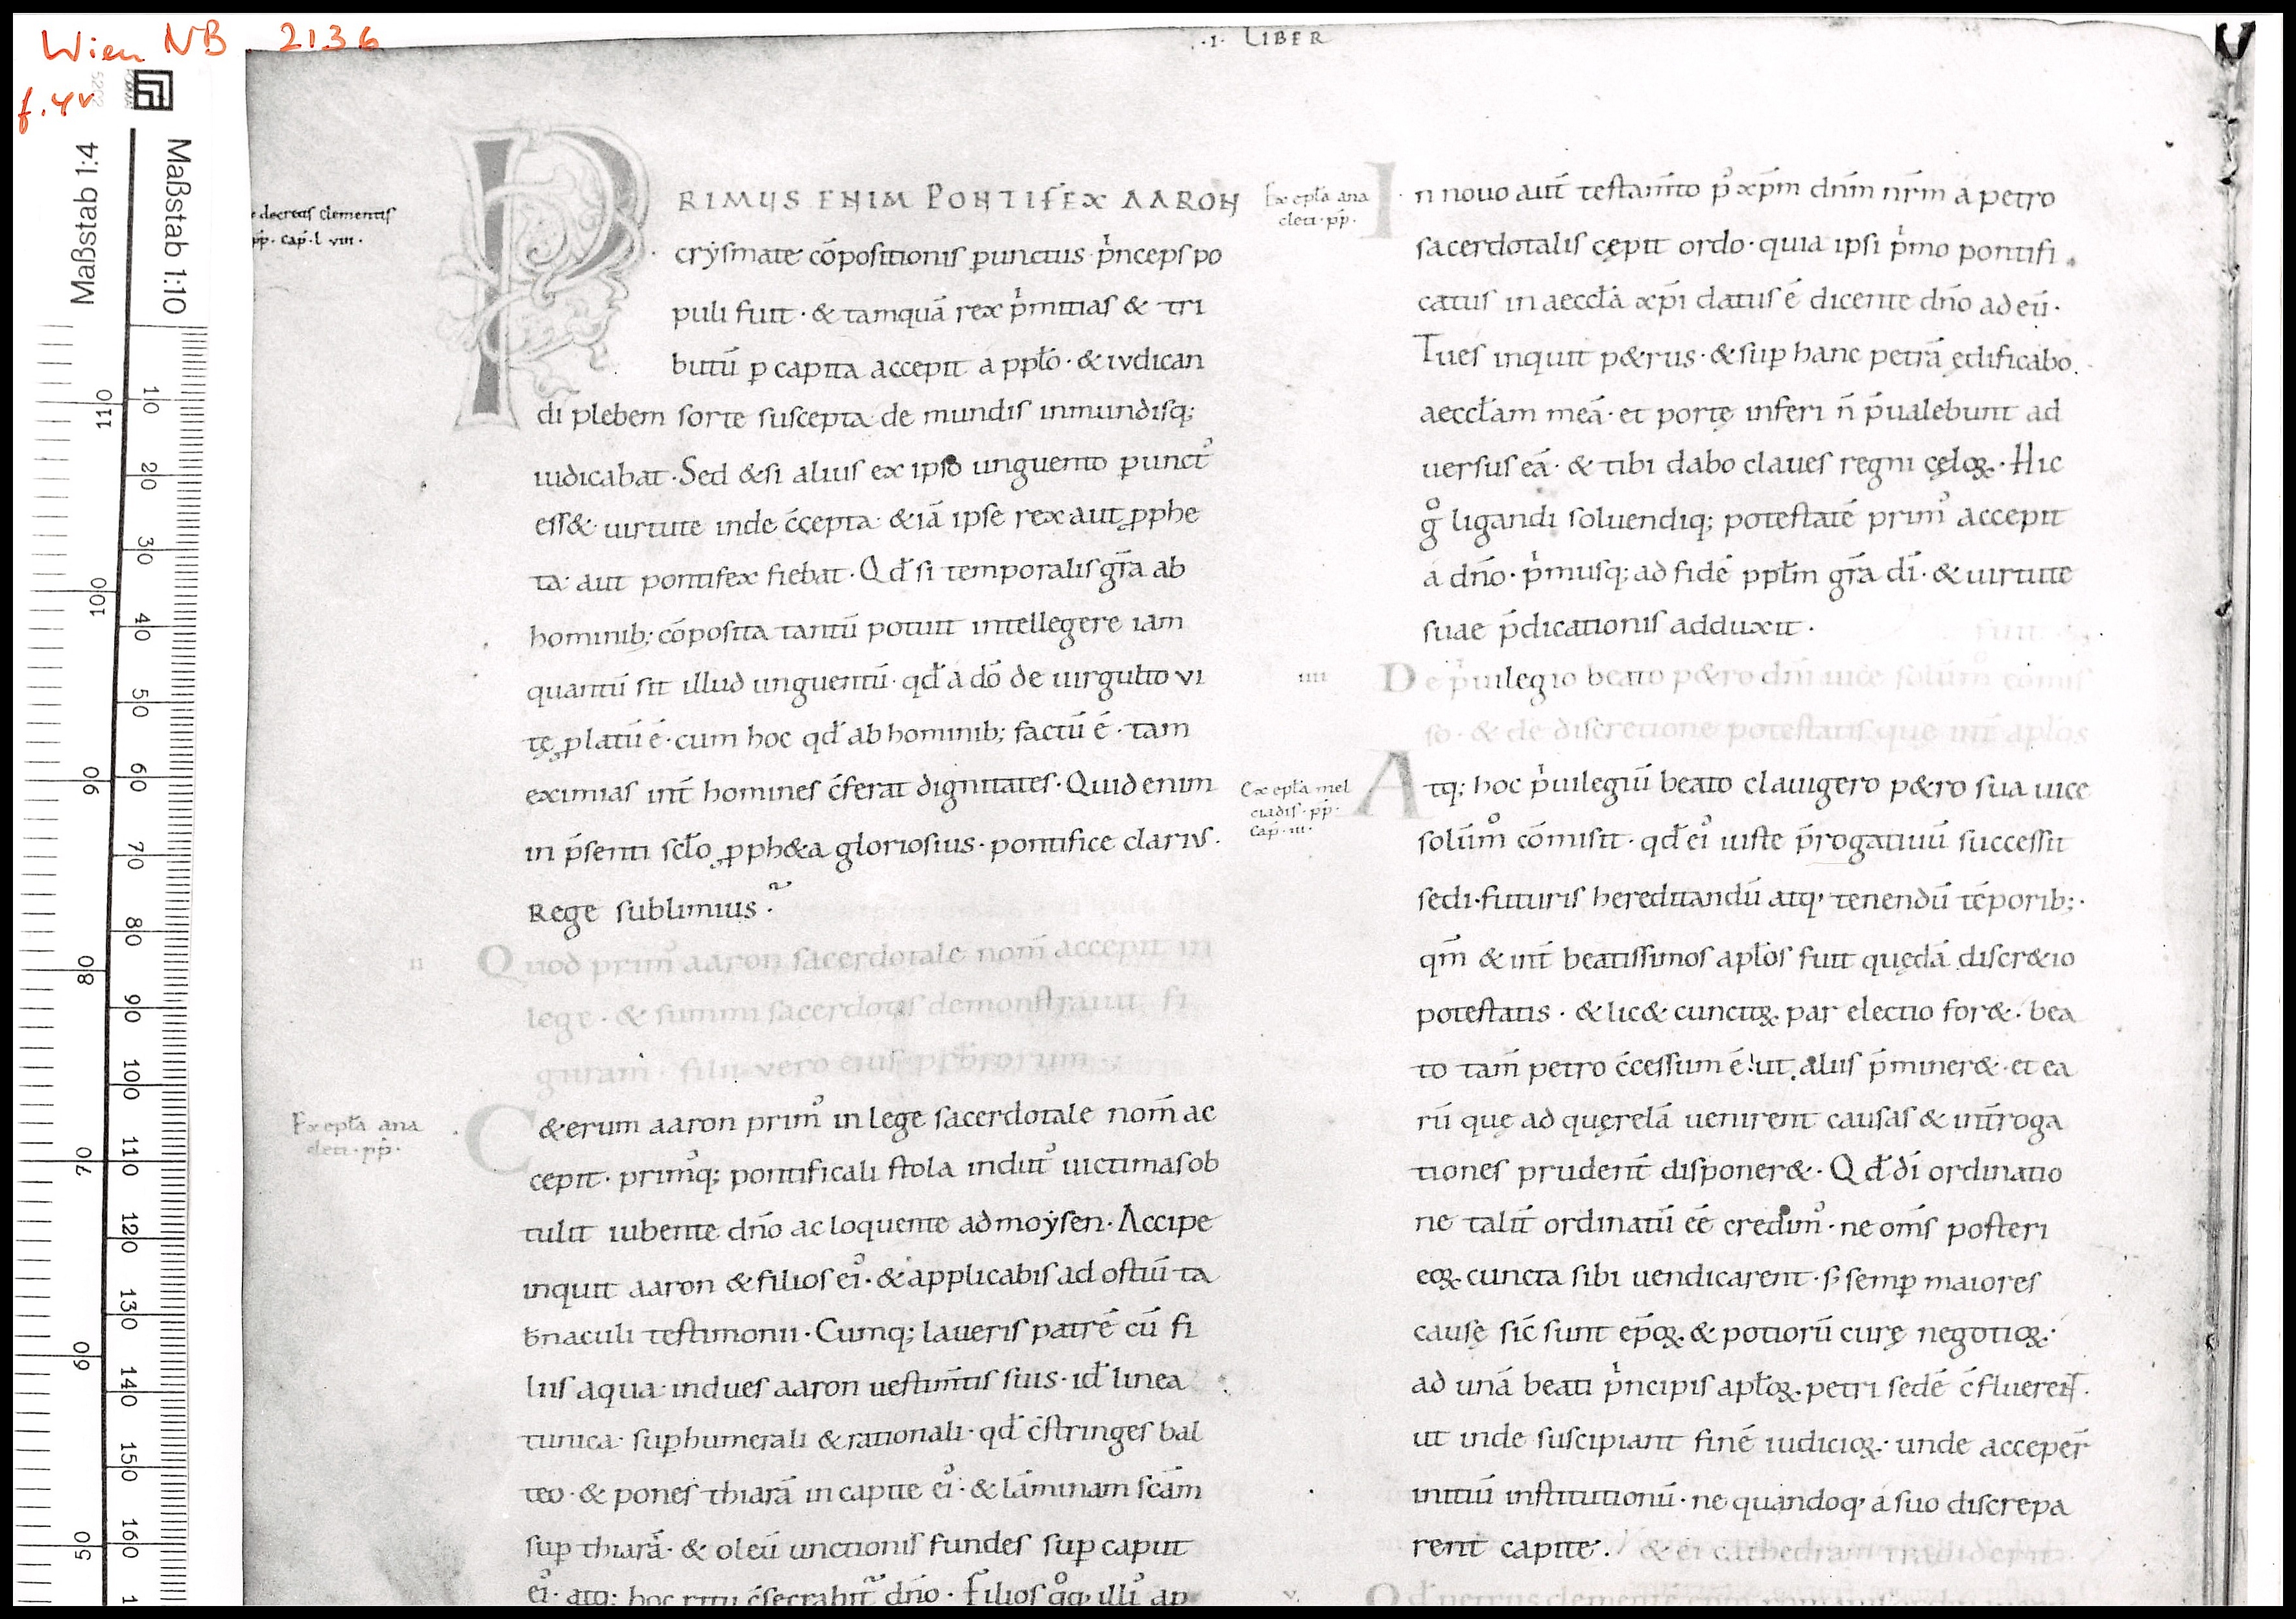 Wien NB 2136
f. 4v
Maßstab 1:4
Maßstab 1:10
·I· LIBER
decretis clementis
pp̄· cap̄· l viii·
PRIMUS ENIM PONTIFEX AARON
crẏsmate cōpositionis ꝑunctus pͥnceps po
puli fuit · & tamquā rex pͥmitias & tri
butū ꝑ capita accepit a ppl̄o · & iudican
di plebem sorte suscepta de mundis inmundisq;
iudicabat · Sed &si alius ex ipso unguento ꝑunctꝰ
ess& uirtute inde c̄cepta · & iā ipse rex aut ꝓphe
ta · aut pontifex fiebat · Qd̄ si temporalis gr̄a ab
hominib; cōposita tantū potuit intellegere iam
quantū sit illud unguentū · qd̄ a dō de uirgulto vi
tę ꝓlatū ē · cum hoc qd̄ ab hominib; factū ē · tam
eximias int̄ homines c̄ferat dignitates · Quid enim
in p̄senti scl̄o ꝓph&a gloriosius · pontifice clarius ·
Rege sublimius ·
II
Quod primꝰ aaron sacerdotale nom̄ accepit in
lege · & summi sacerdotis demonstrauit fi
guram · filii vero eius pr̄brorum
Ex epl̄a ana
cleti · pp̄ ·
C&erum aaron primꝰ in lege sacerdotale nom̄ ac
cepit · primꝰq; pontificali stola indutꝰ uictimas ob
tulit iubente dn̄o ac loquente ad moẏsen · Accipe
inquit aaron & filios eiꝰ · & applicabis ad ostiū ta
b̄naculi testimonii · Cumq; laueris patrē cū fi
liis aqua · indues aaron uestim̄tis suis · id̄ linea
tunica · suꝑhumerali & rationali · qd̄ c̄stringes bal
teo · & pones thiarā in capite eiꝰ · & lāminam sc̄am
suꝑ thiarā · & oleū unctionis fundes suꝑ caput
eiꝰ · atq; hoc ritu c̄secrabit̄ dn̄o · Filios qͦq; illiꝰ ap
Ex epl̄a ana
cleti · pp̄ ·
In nouo aut̄ testam̄to p̾ xp̄m dn̄m nr̄m a petro
sacerdotalis cępit ordo · quia ipsi pͥmo pontifi
catus in aeccl̄a xp̄i datus ē dicente dn̄o ad eū ·
Tu es inquit p&rus · & suꝑ hanc petrā ędificabo
aeccl̄am meā · et portę inferi n̄ p̄ualebunt ad
uersus eā · & tibi dabo claues regni cęloꝝ · Hic
gͦ ligandi soluendiq; potestatē primꝰ accepit
a dn̄o · pͥmusq; ad fidē ppl̄m gr̄a dī · & uirtute
suae p̄dicationis adduxit ·
IIII
De pͥuilegio beato p&ro dn̄i uice solūmͦ comis
so · & de discretione potestatis quę int̄ apl̄os
Ex epl̄a mel
ciadis · pp̄ ·
Cap̄ · III ·
Atq; hoc pͥuilegiū beato clauigero p&ro sua uice
solūmͦ cōmisit · qd̄ eiꝰ iuste p̄rogatiuū successit
sedi · futuris hereditandū atq; tenendū tēporib; ·
qm̄ & int̄ beatissimos apl̄os fuit quędā discr&io
potestatis · & lic& cunctoꝝ par electio for& · bea
to tam̄ petro c̄cessum ē ut aliis p̄miner& · et ea
rū quę ad quęrelā uenirent causas & int̄roga
tiones prudent̄ disponer& · Qd̄ dī ordinatio
ne talit̄ ordinatū eē credimꝰ · ne om̄s posteri
eoꝝ cuncta sibi uendicarent · s; semꝑ maiores
causę sic̄ sunt ep̄oꝝ & potiorū curę negotioꝝ ·
ad unā beati pͥncipis apl̄oꝝ petri sedē c̄fluerent ·
ut inde suscipiant finē iudicioꝝ · unde acceper̄
initiū institutionū · ne quandoq; a suo discrepa
rent capite ·
& ei cathedram tradiderit
V
Qd̄ petrus clemente